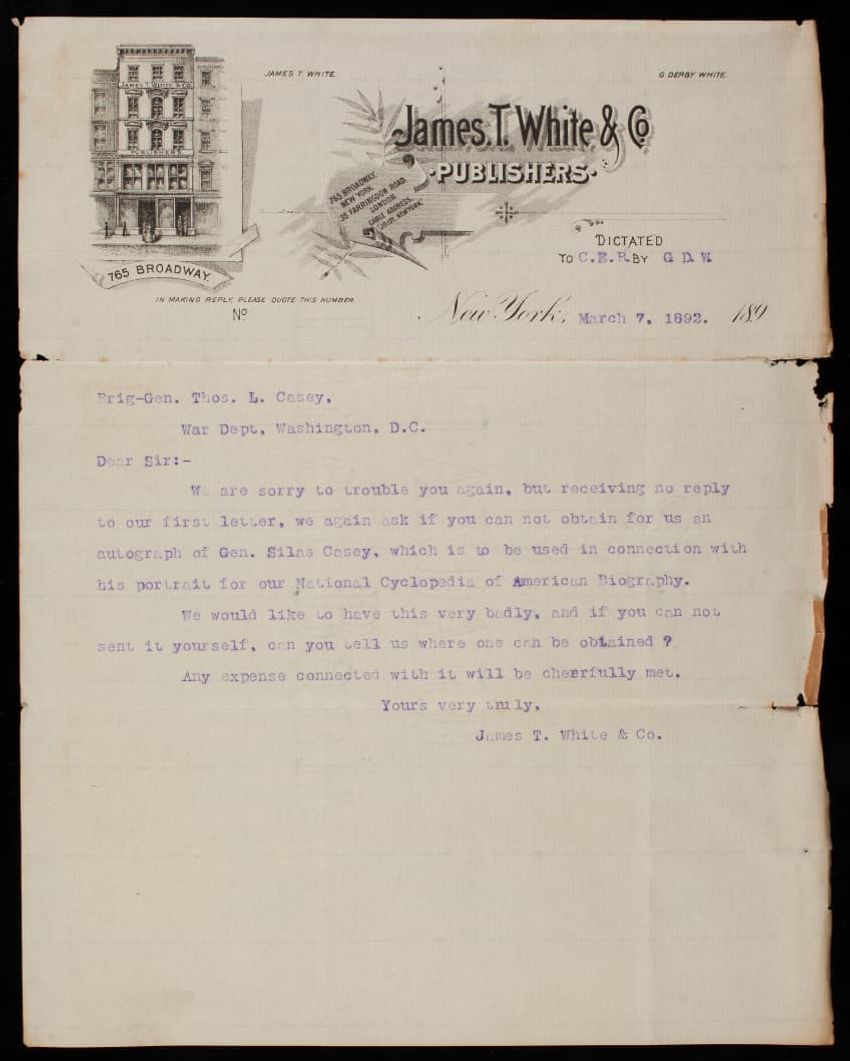 JAMES T. WHITE.
G. DERBY WHITE.
JAMES T. WHITE & CO.
PUBLISHERS
James T. White & Co
PUBLISHERS
765 BROADWAY,
NEW YORK.
35 FARRINGDON ROAD
LONDON.
CABLE ADDRESS,
765 BROADWAY.
DICTATED
TO C.E.R. BY G D.W.
IN MAKING REPLY, PLEASE QUOTE THIS NUMBER.
No
New York, March 7, 1892. 189
Brig-Gen. Thos. L. Casey,
War Dept, Washington, D.C.
Dear Sir:-
We are sorry to trouble you again, but receiving no reply
to our first letter, we again ask if you can not obtain for us an
autograph of Gen. Silas Casey, which is to be used in connection with
his portrait for our National Cyclopedia of American Biography.
We would like to have this very badly, and if you can not
sent it yourself, can you tell us where one can be obtained ?
Any expense connected with it will be cheerfully met.
Yours very truly,
James T. White & Co.